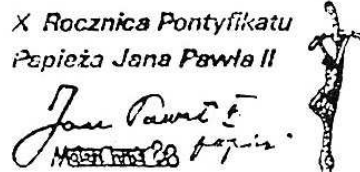 X Rocznica Pontyfikatu
Papieża Jana Pawła II
Jan Paweł II
papież